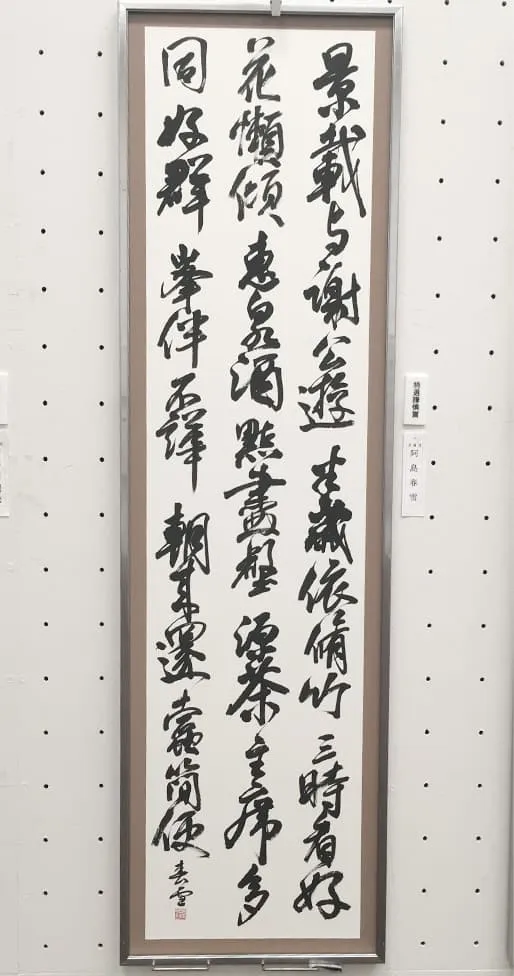 景載与謝公遊半歲依脩竹三時看好
花懶傾惠泉酒點盡壑源茶主席多
同好群峯伴不譁朝来還蠹簡便
春雪
特選謙慎賞
阿島春雪